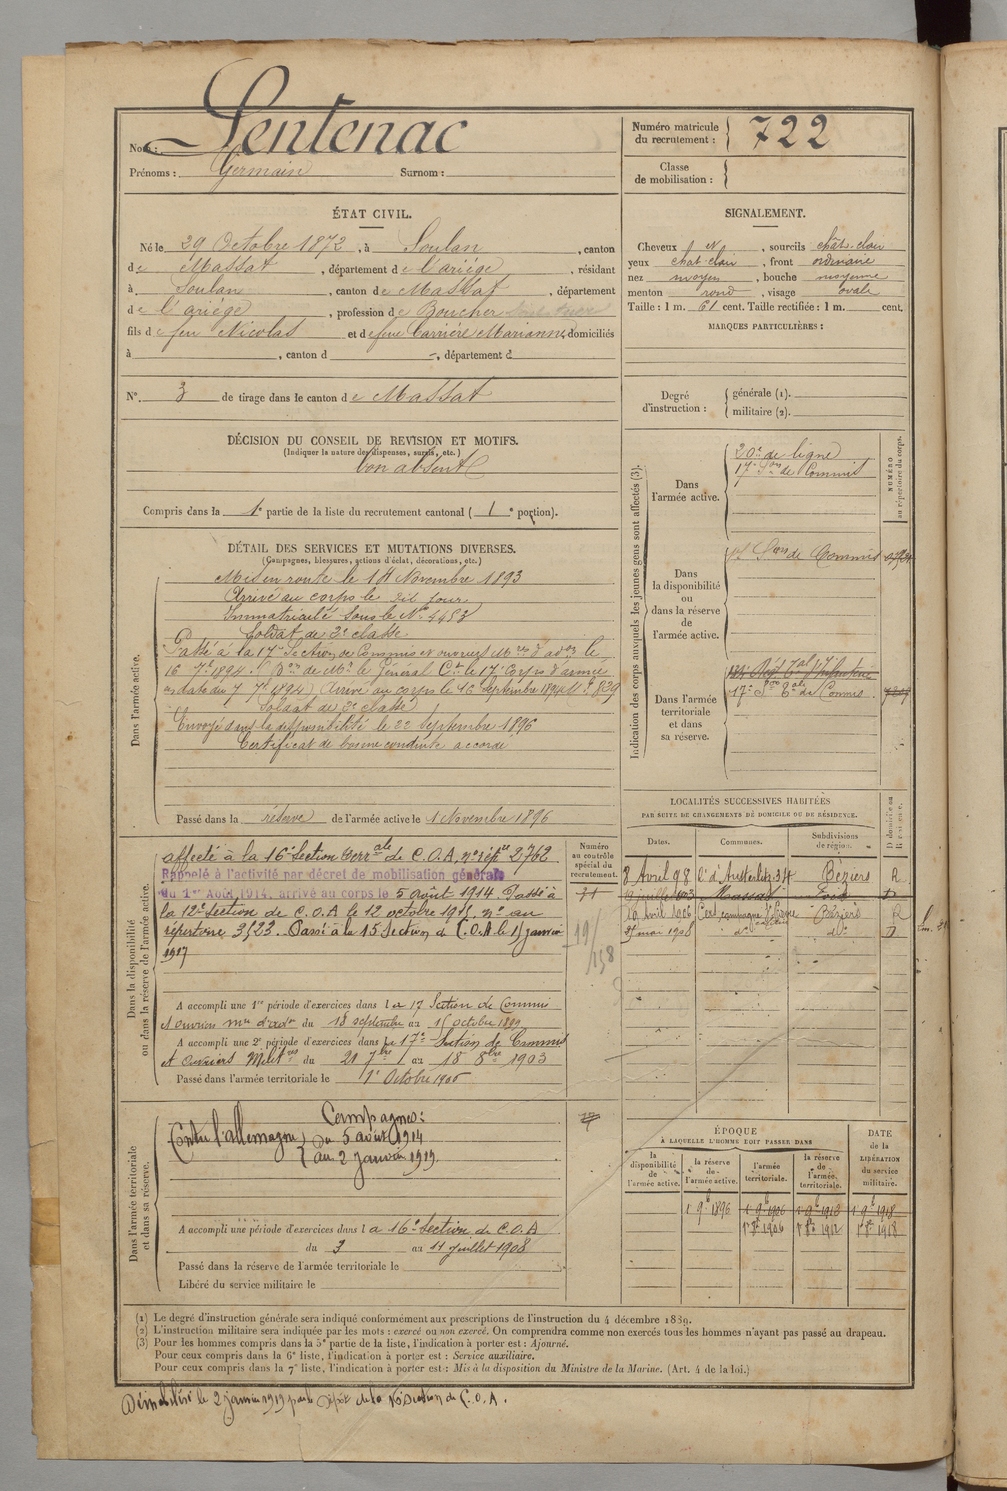 Nom : Sentenac
Prénoms : Germain Surnom :
Numéro matricule du recrutement : 722
Classe de mobilisation :
ÉTAT CIVIL.
Né le 29 Octobre 1872, à Soulan, canton
de Massat, département de l'ariège, résidant
à Soulan, canton de Massat, département
de l'ariège, profession de Boucher
fils de feu Nicolas et de feue Carrière Marianne, domiciliés
à , canton d , département d
N° 3 de tirage dans le canton de Massat
DÉCISION DU CONSEIL DE REVISION ET MOTIFS.
(Indiquer la nature des dispenses, sursis, etc.)
bon absent
Compris dans la 1e partie de la liste du recrutement cantonal ( 1e portion).
DÉTAIL DES SERVICES ET MUTATIONS DIVERSES.
(Campagnes, blessures, actions d'éclat, décorations, etc.)
Dans l'armée active.
Mis en route le 14 Novembre 1893
Arrivé au corps le dit jour
Immatriculé sous le N° 4453
Soldat de 2e classe
Passé à la 17e Section de Commis et ouvriers Mres d'adon le
16 7bre 1894. (Don de Mr le Général Ct le 17e Corps d'armée
en date du 7 7bre 1894) Arrivé au corps le 16 Septembre 1894 N° 829
Soldat de 2e classe
Envoyé dans la disponibilité le 22 Septembre 1896
Certificat de bonne conduite accordé
Passé dans la réserve de l'armée active le 1 Novembre 1896
Dans la disponibilité ou dans la réserve de l'armée active.
affecté à la 16e Section terrale de C.O.A. n° répre 2762
Rappelé à l'activité par décret de mobilisation générale
du 1er Août 1914, arrivé au corps le 5 août 1914 Passé à
la 12e Section de C.O.A le 12 octobre 1915. n° au
répertoire 3523. Passé à la 15 Section de C.O.A le 15 janvier
1917
A accompli une 1re période d'exercices dans la 17 Section de Commis
et ouvriers mres d'adon du 18 septembre au 15 octobre 1899
A accompli une 2e période d'exercices dans la 17e Section de Commis
et Ouvriers Milit res du 21 7bre au 18 8bre 1903
Passé dans l'armée territoriale le 1er Octobre 1906
Dans l'armée territoriale et dans sa réserve.
Campagnes :
Contre l'allemagne Du 5 août 1914
au 2 Janvier 1919.
A accompli une période d'exercices dans la 16e Section de C.O.A
du 3 au 11 juillet 1908
Passé dans la réserve de l'armée territoriale le
Libéré du service militaire le
Numéro au contrôle spécial du recrutement.
SIGNALEMENT.
Cheveux N, sourcils chât. clair
yeux chat. clair, front ordinaire
nez moyen, bouche moyenne
menton rond, visage ovale
Taille : 1 m. 61 cent. Taille rectifiée : 1 m. cent.
MARQUES PARTICULIÈRES :
Degré d'instruction : générale (1). militaire (2).
Indication des corps auxquels les jeunes gens sont affectés (3).
NUMÉRO au répertoire du corps.
Dans l'armée active.
20e de ligne
17e Son de Commis
Dans la disponibilité ou dans la réserve de l'armée active.
Son de Commis
Dans l'armée territoriale et dans sa réserve.
17e Son Tale de Commis
LOCALITÉS SUCCESSIVES HABITÉES
PAR SUITE DE CHANGEMENTS DE DOMICILE OU DE RÉSIDENCE.
Dates. Communes. Subdivisions de région. D domicile ou R résidence.
8 Avril 98 R. d'Austerlitz 34 Béziers R
9 juillet 1903 Massat Foix D
10 Avril 1906 Béziers R
25 mai 1908 do do D
ÉPOQUE
À LAQUELLE L'HOMME DOIT PASSER DANS
DATE de la LIBÉRATION du service militaire.
la disponibilité de l'armée active. la réserve de l'armée active. l'armée territoriale. la réserve de l'armée territoriale.
1 9b 1896 1 9b 1906 1 9b 1912 1 9b 1918
1 8b 1906 1 8b 1912 1 8b 1918
(1) Le degré d'instruction générale sera indiqué conformément aux prescriptions de l'instruction du 4 décembre 1889.
(2) L'instruction militaire sera indiquée par les mots : exercé ou non exercé. On comprendra comme non exercés tous les hommes n'ayant pas passé au drapeau.
(3) Pour les hommes compris dans la 5e partie de la liste, l'indication à porter est : Ajourné.
Pour ceux compris dans la 6e liste, l'indication à porter est : Service auxiliaire.
Pour ceux compris dans la 7e liste, l'indication à porter est : Mis à la disposition du Ministre de la Marine. (Art. 4 de la loi.)
Démobilisé le 2 janvier 1919 par le Dépôt de la Section de C.O.A.